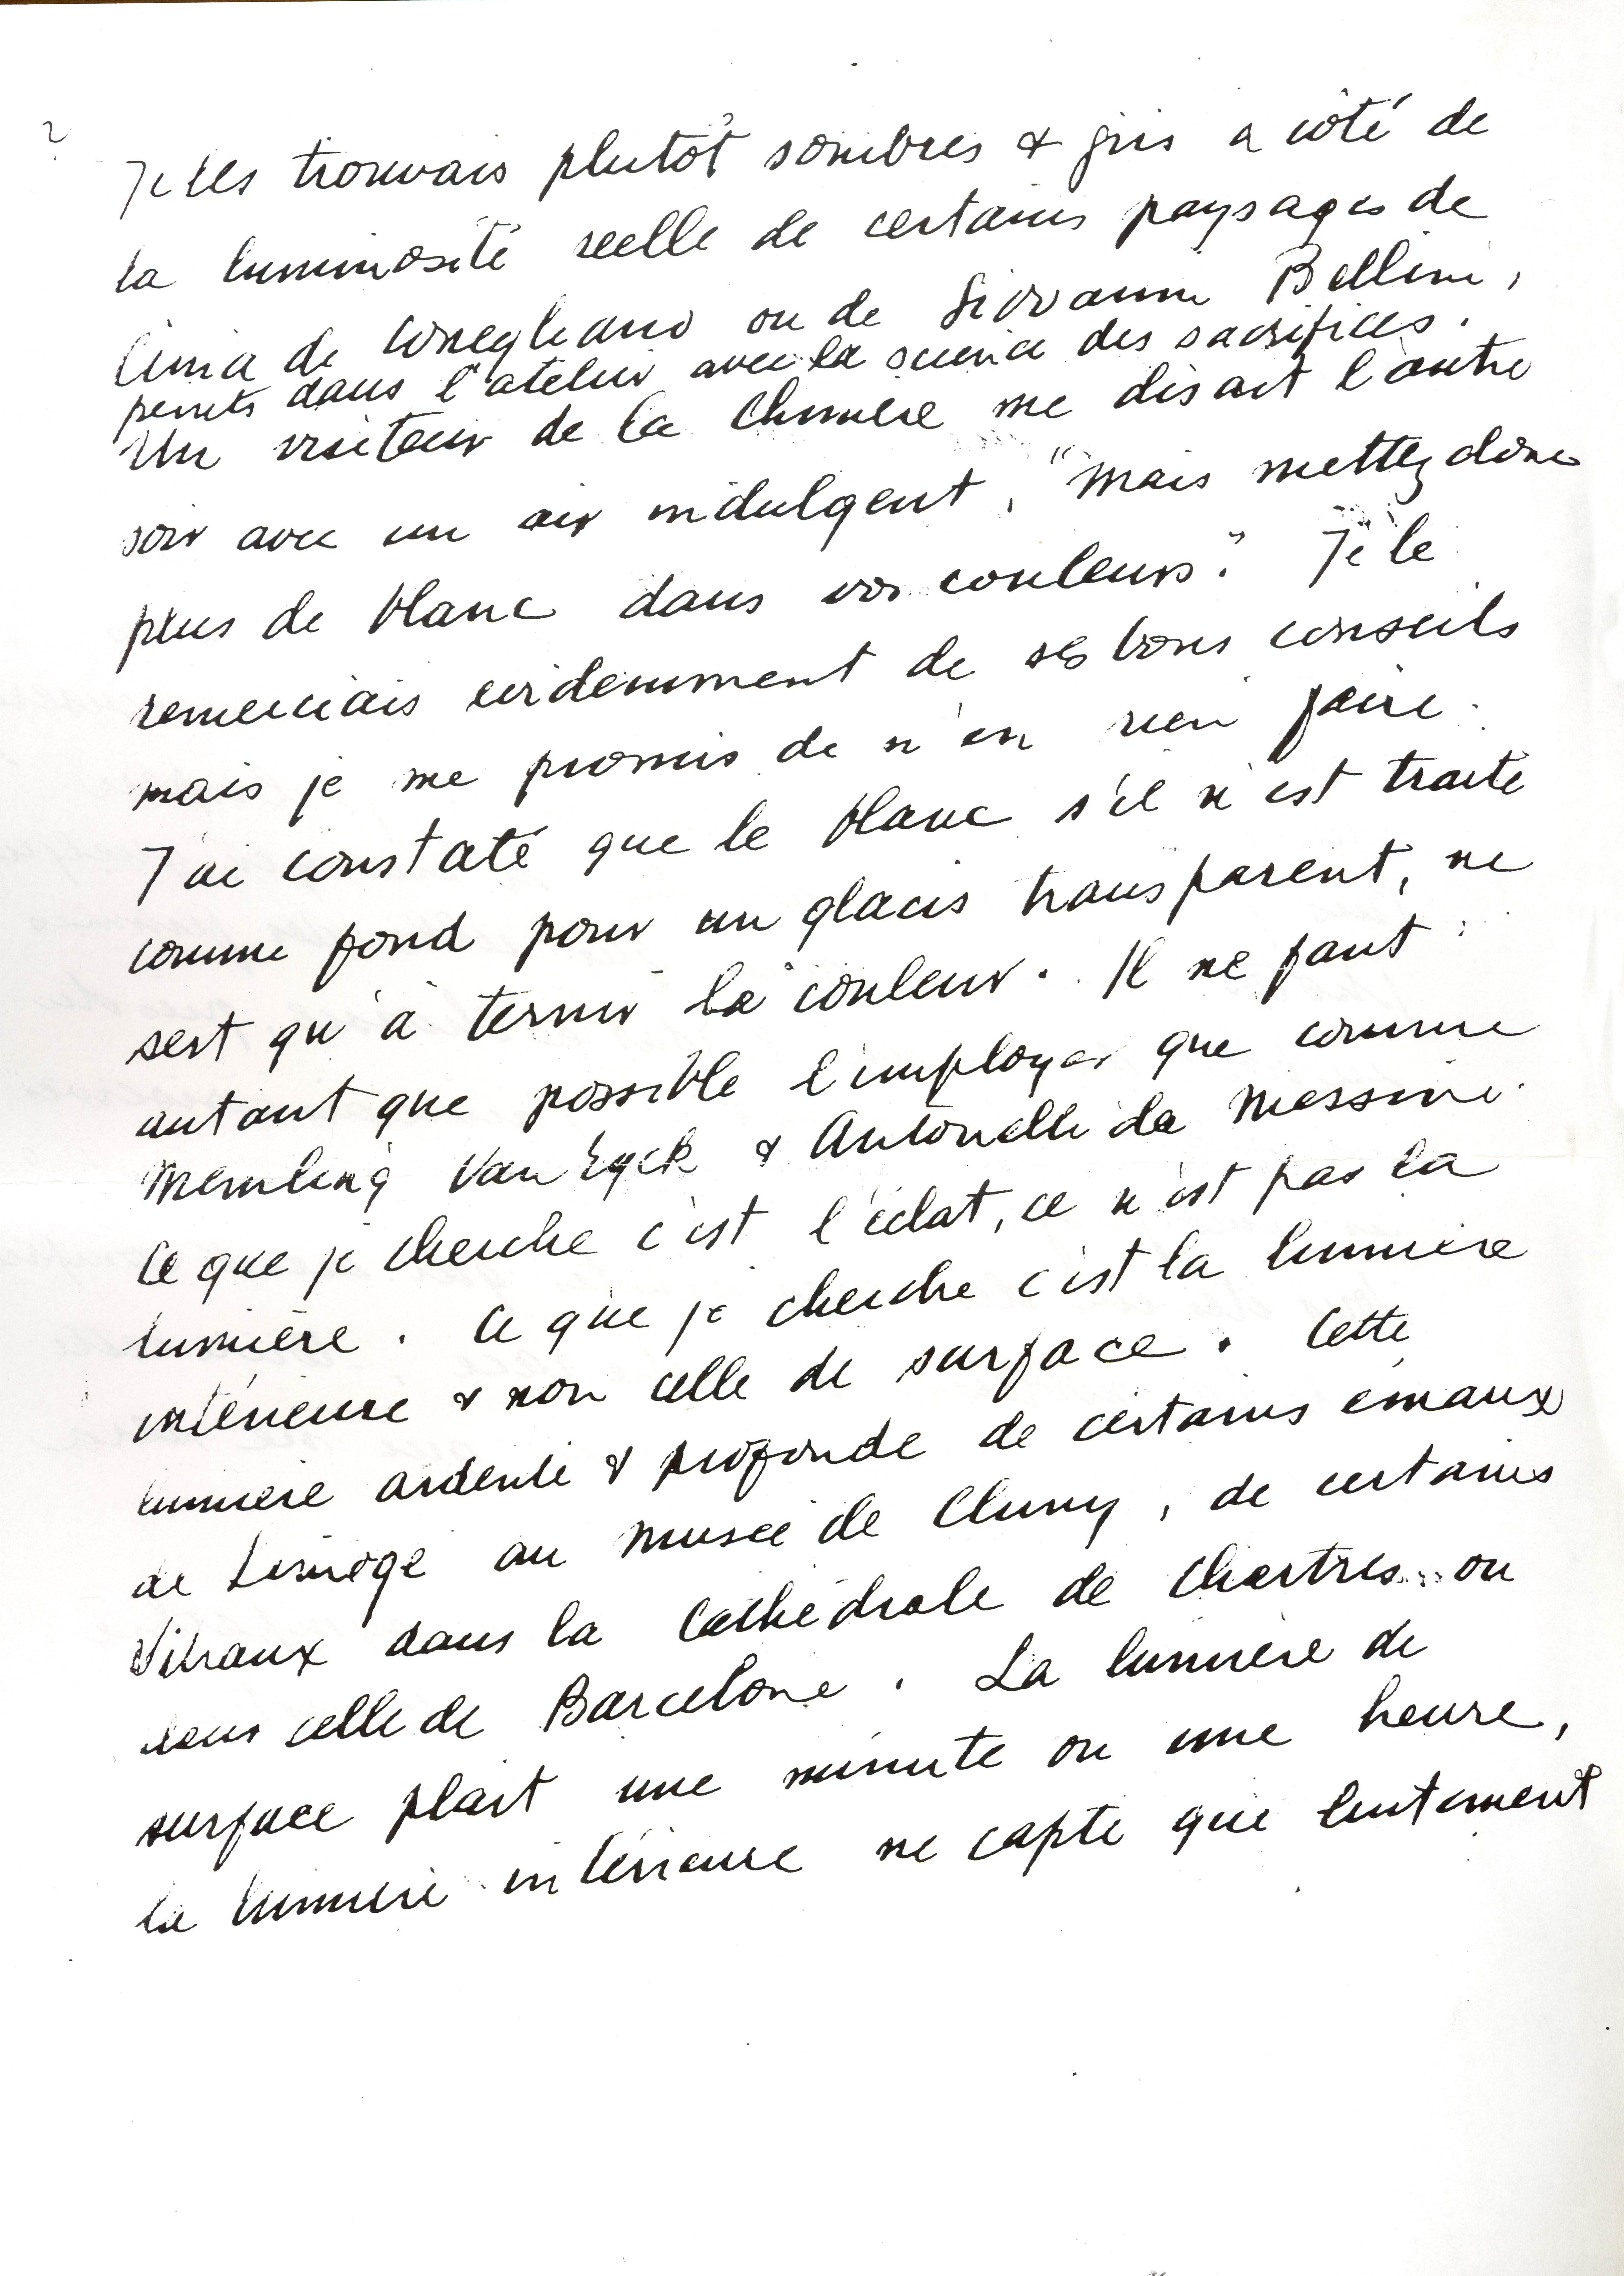 ?
Je les trouvais plutôt sombres & gris a côté de
la luminosité reelle de certains paysages de
Cima de Conegliano ou de Giovanni Bellini,
peints dans l'atelier avec la science des sacrifices.
Un visiteur de la Chimère me disait l'autre
soir avec un air indulgent, "Mais mettez donc
plus de blanc dans vos couleurs." Je le
remerciais evidemment de ses bons conseils
mais je me promis de n'en rien faire.
J'ai constaté que le blanc s'il n'est traité
comme fond pour un glacis transparent, ne
sert qu'à ternir la couleur. Il ne faut
autant que possible l'employer que comme
Memling Van Eyck & Antonello da Messine.
Ce que je cherche c'est l'éclat, ce n'est pas la
lumière. Ce que je cherche c'est la lumière
intérieure & non celle de surface. Cette
lumière ardente & profonde de certains émaux
de Limoge au Musée de Cluny, de certains
Vitraux dans la Cathédrale de Chartres ou
celle de Barcelone. La lumière de
surface plait une minute ou une heure,
la lumière intérieure ne capte que lentement